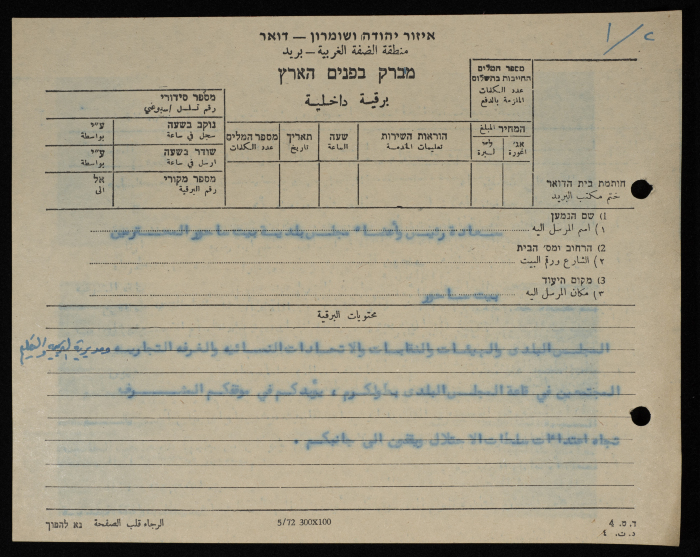 ١/ج
איזור יהודה ושומרון – דואר
منطقة الضفة الغربية – بريد
מברק בפנים הארץ
برقية داخلية
מספר המלים
החייבות בתשלום
عدد الكلمات
الملزمة بالدفع
המחיר المبلغ
אג' اغورة
ל"י ليرة
הוראות השירות
تعليمات الخدمة
שעה
الساعة
תאריך
تاريخ
מספר המלים
عدد الكلمات
מספר סידורי
رقم تسلسل
נוקב בשעה
سجل في ساعة
ע"י
بواسطة
שודר בשעה
ارسل في ساعة
ע"י
بواسطة
מספר מקורי
رقم البرقية
אל
الى
חותמת בית הדואר
ختم مكتب البريد
1) שם הנמען
١) اسم المرسل اليه سعادة رئيس وأعضاء مجلس بلدية بيت ساحور المحترمين
2) הרחוב ומס' הבית
٢) الشارع ورقم البيت
3) מקום היעוד
٣) مكان المرسل اليه بيت ساحور
محتويات البرقية
المجلس البلدي والجمعيات والنقابات والاتحادات النسائيه والغرفه التجاريه ومديرية التربية والتعليم
المجتمعين في قاعة المجلس البلدي بطولكرم ، يؤيدكم في موقفكم المشرف
تجاه اعتداءات سلطات الاحتلال ويقفون الى جانبكم .
ד. ט. 4
د. ت. ٤
5/72 300X100
الرجاء قلب الصفحة נא להפוך